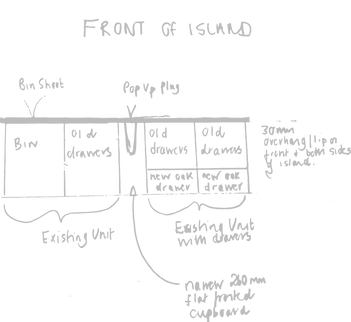 FRONT OF ISLAND
Bin Sheet
Pop Up Plug
BIN
Old
drawers
old
drawers
old
drawers
30mm
overhang/lip on
front & both sides
of island.
new oak
drawer
new oak
drawer
Existing Unit
Existing Unit
with drawers
narrow 260mm
flat fronted
cupboard